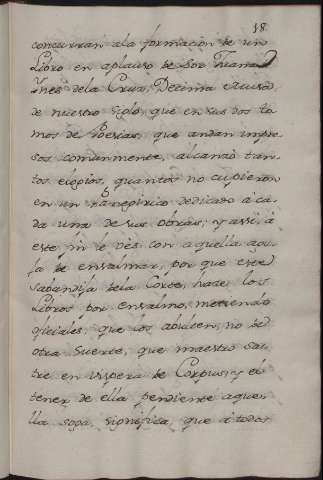 18
concurran ala formacion de un
Libro en aplauso de Sor Juana
Ynes dela Cruz, Decima Musa
de nuestro siglo, que en sus dos to
mos de Poesias, que andan impre
sos comunmente, alcanzò tan
tos elogios, quantos no cupieron
en un dedicado à ca
da una de sus obras; y assi, à
este fin le vès con aquella agu
ja de ensalmar, por que este
Sabandija dela Corte, hace los
Libros por ensalmo, metiendo
oficiales, que los abulten, no de
otra suerte, que maestro Sas
tre en vispera de Corpus; y el
tener de ella pendiente aque
lla soga, significa, que à todos